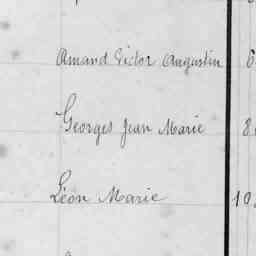 Amand Victor Augustin
Georges Jean Marie 8
Léon Marie 10